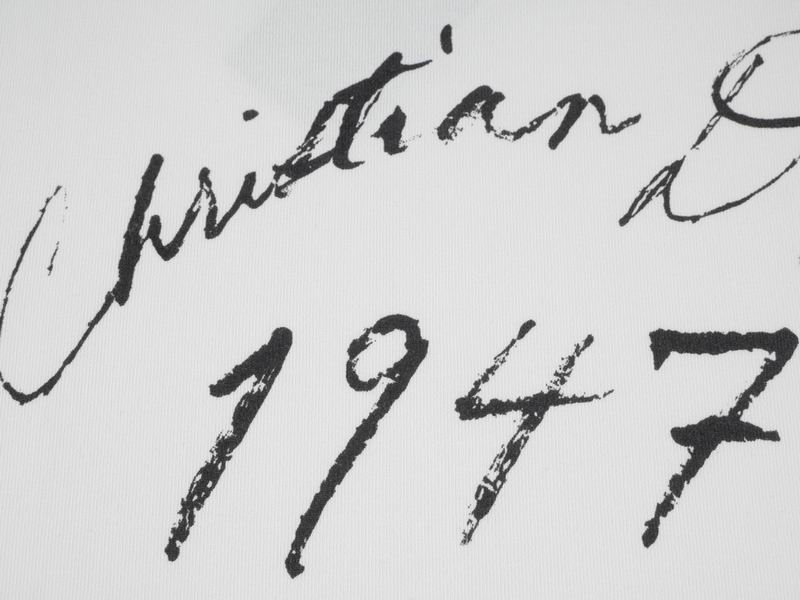 Christian D
1947